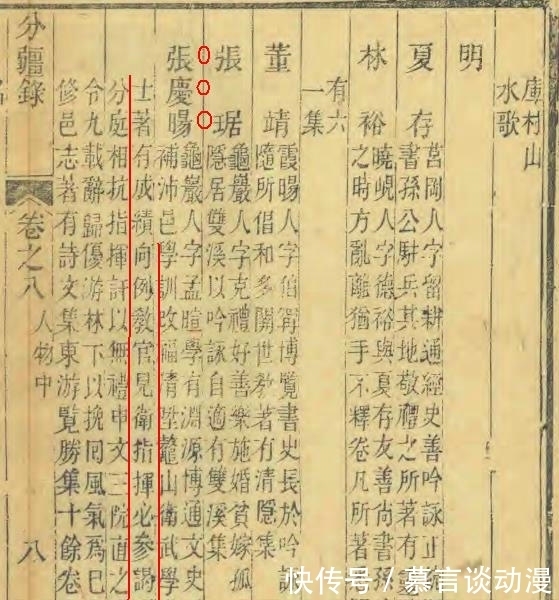 庫村山
水歌
明
夏存
莒岡人字留耕通經史善吟詠正
書孫公駐兵其地敬禮之所著有
林裕
曉峴人字德裕與夏存友善尚書孫
之時方亂離猶手不釋卷凡所著
有六
一集
董靖
霞暘人字伯
博覽書史長於吟詞
隨所倡和多關世教著有清隱集
張琚
龜巖人字克禮好善樂施婚貧嫁孤
隱居雙溪以吟詠自適有雙溪集
張慶暘
龜巖人字孟暄學有淵源博通文史
補沛邑學訓改福清陞鼇山衛武學
士著有成績向例教官見衛指揮必參謁
分庭相抗指揮訐以無禮申文三院直之
令九載辭歸優游林下以挽回風氣爲己
修邑志著有詩文集東游覽勝集十餘卷
分疆錄
卷之八
人物中
八
快传号/慕言谈动漫